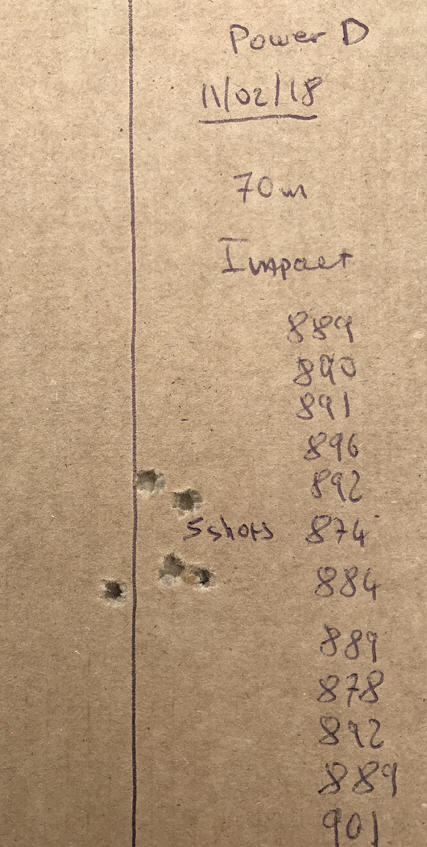 Power D
11/02/18
70m
Impact
889
890
891
896
892
5 shots 874
884
889
878
892
889
901